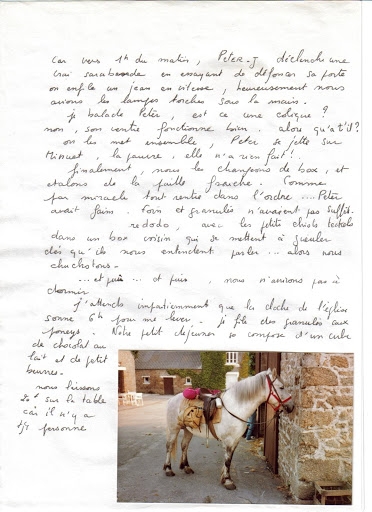 Car vers 1h du matin, Peter-J déclenche une
vrai sarabande en essayant de défoncer sa porte
on enfile un jean en vitesse, heureusement nous
avions les lampes torches sous la main.
je balade Peter, est ce une colique ?
non, son ventre fonctionne bien. alors qu'a t'il ?
on les met ensemble, Peter se jette sur
Minuet, la pauvre, elle n'a rien fait !
finalement, nous les changeons de box, et
etalons de la paille fraîche. Comme
par miracle tout rentre dans l'ordre ... Peter
avait faim. foin et granulés n'avaient pas suffit.
redodo, avec les petits chiots teckels
dans un box voisin qui se mettent à gueuler
dès qu'ils nous entendent parler ... alors nous
chuchotons.
... et puis ... et puis, nous n'arrivons pas à
dormir
j'attends impatiemment que la cloche de l'église
sonne 6h pour me lever. je file des granulés aux
poneys. Nôtre petit déjeuner se compose d'un cube
de chocolat au
lait et de petit
beurres.
nous laissons
20f sur la table
car il n'y a
personne